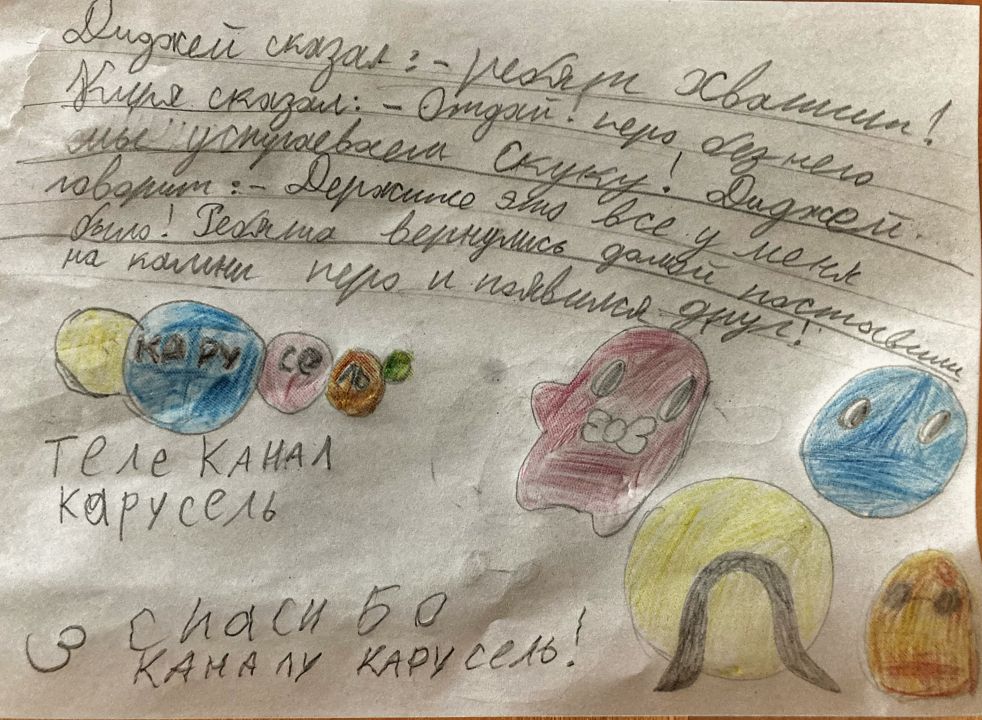 Диджей сказал: - ребята хватит!
Кыря сказал: - Отдай перо без него
мы успугаеваем скуку! Диджей
говорит: - Держите это все у меня
было! Ребята вернулись домой поставили
на камни перо и появился друг!
КА РУ СЕ ЛЬ
ТЕЛЕ КАНАЛ
КАРУСЕЛЬ
СПАСИБО
КАНАЛУ КАРУСЕЛЬ!
3